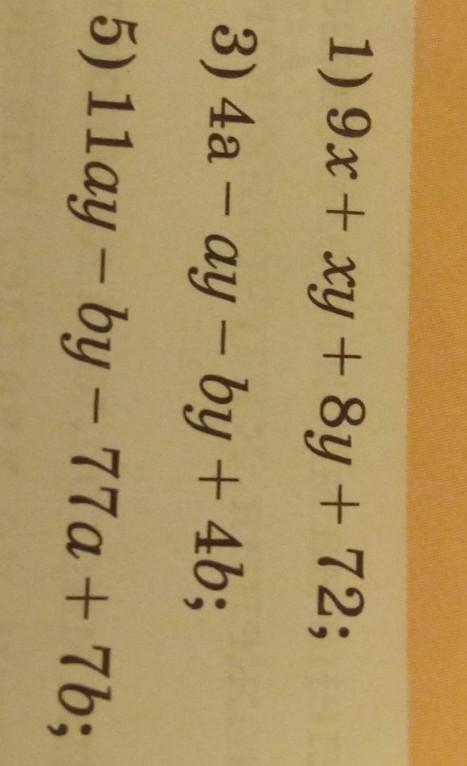 1) 9x + xy + 8y + 72;
3) 4a − ay − by + 4b;
5) 11ay − by − 77a + 7b;